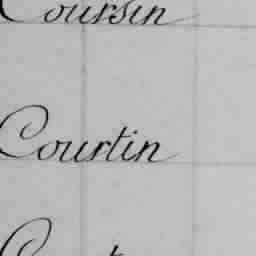 Coursin
Courtin